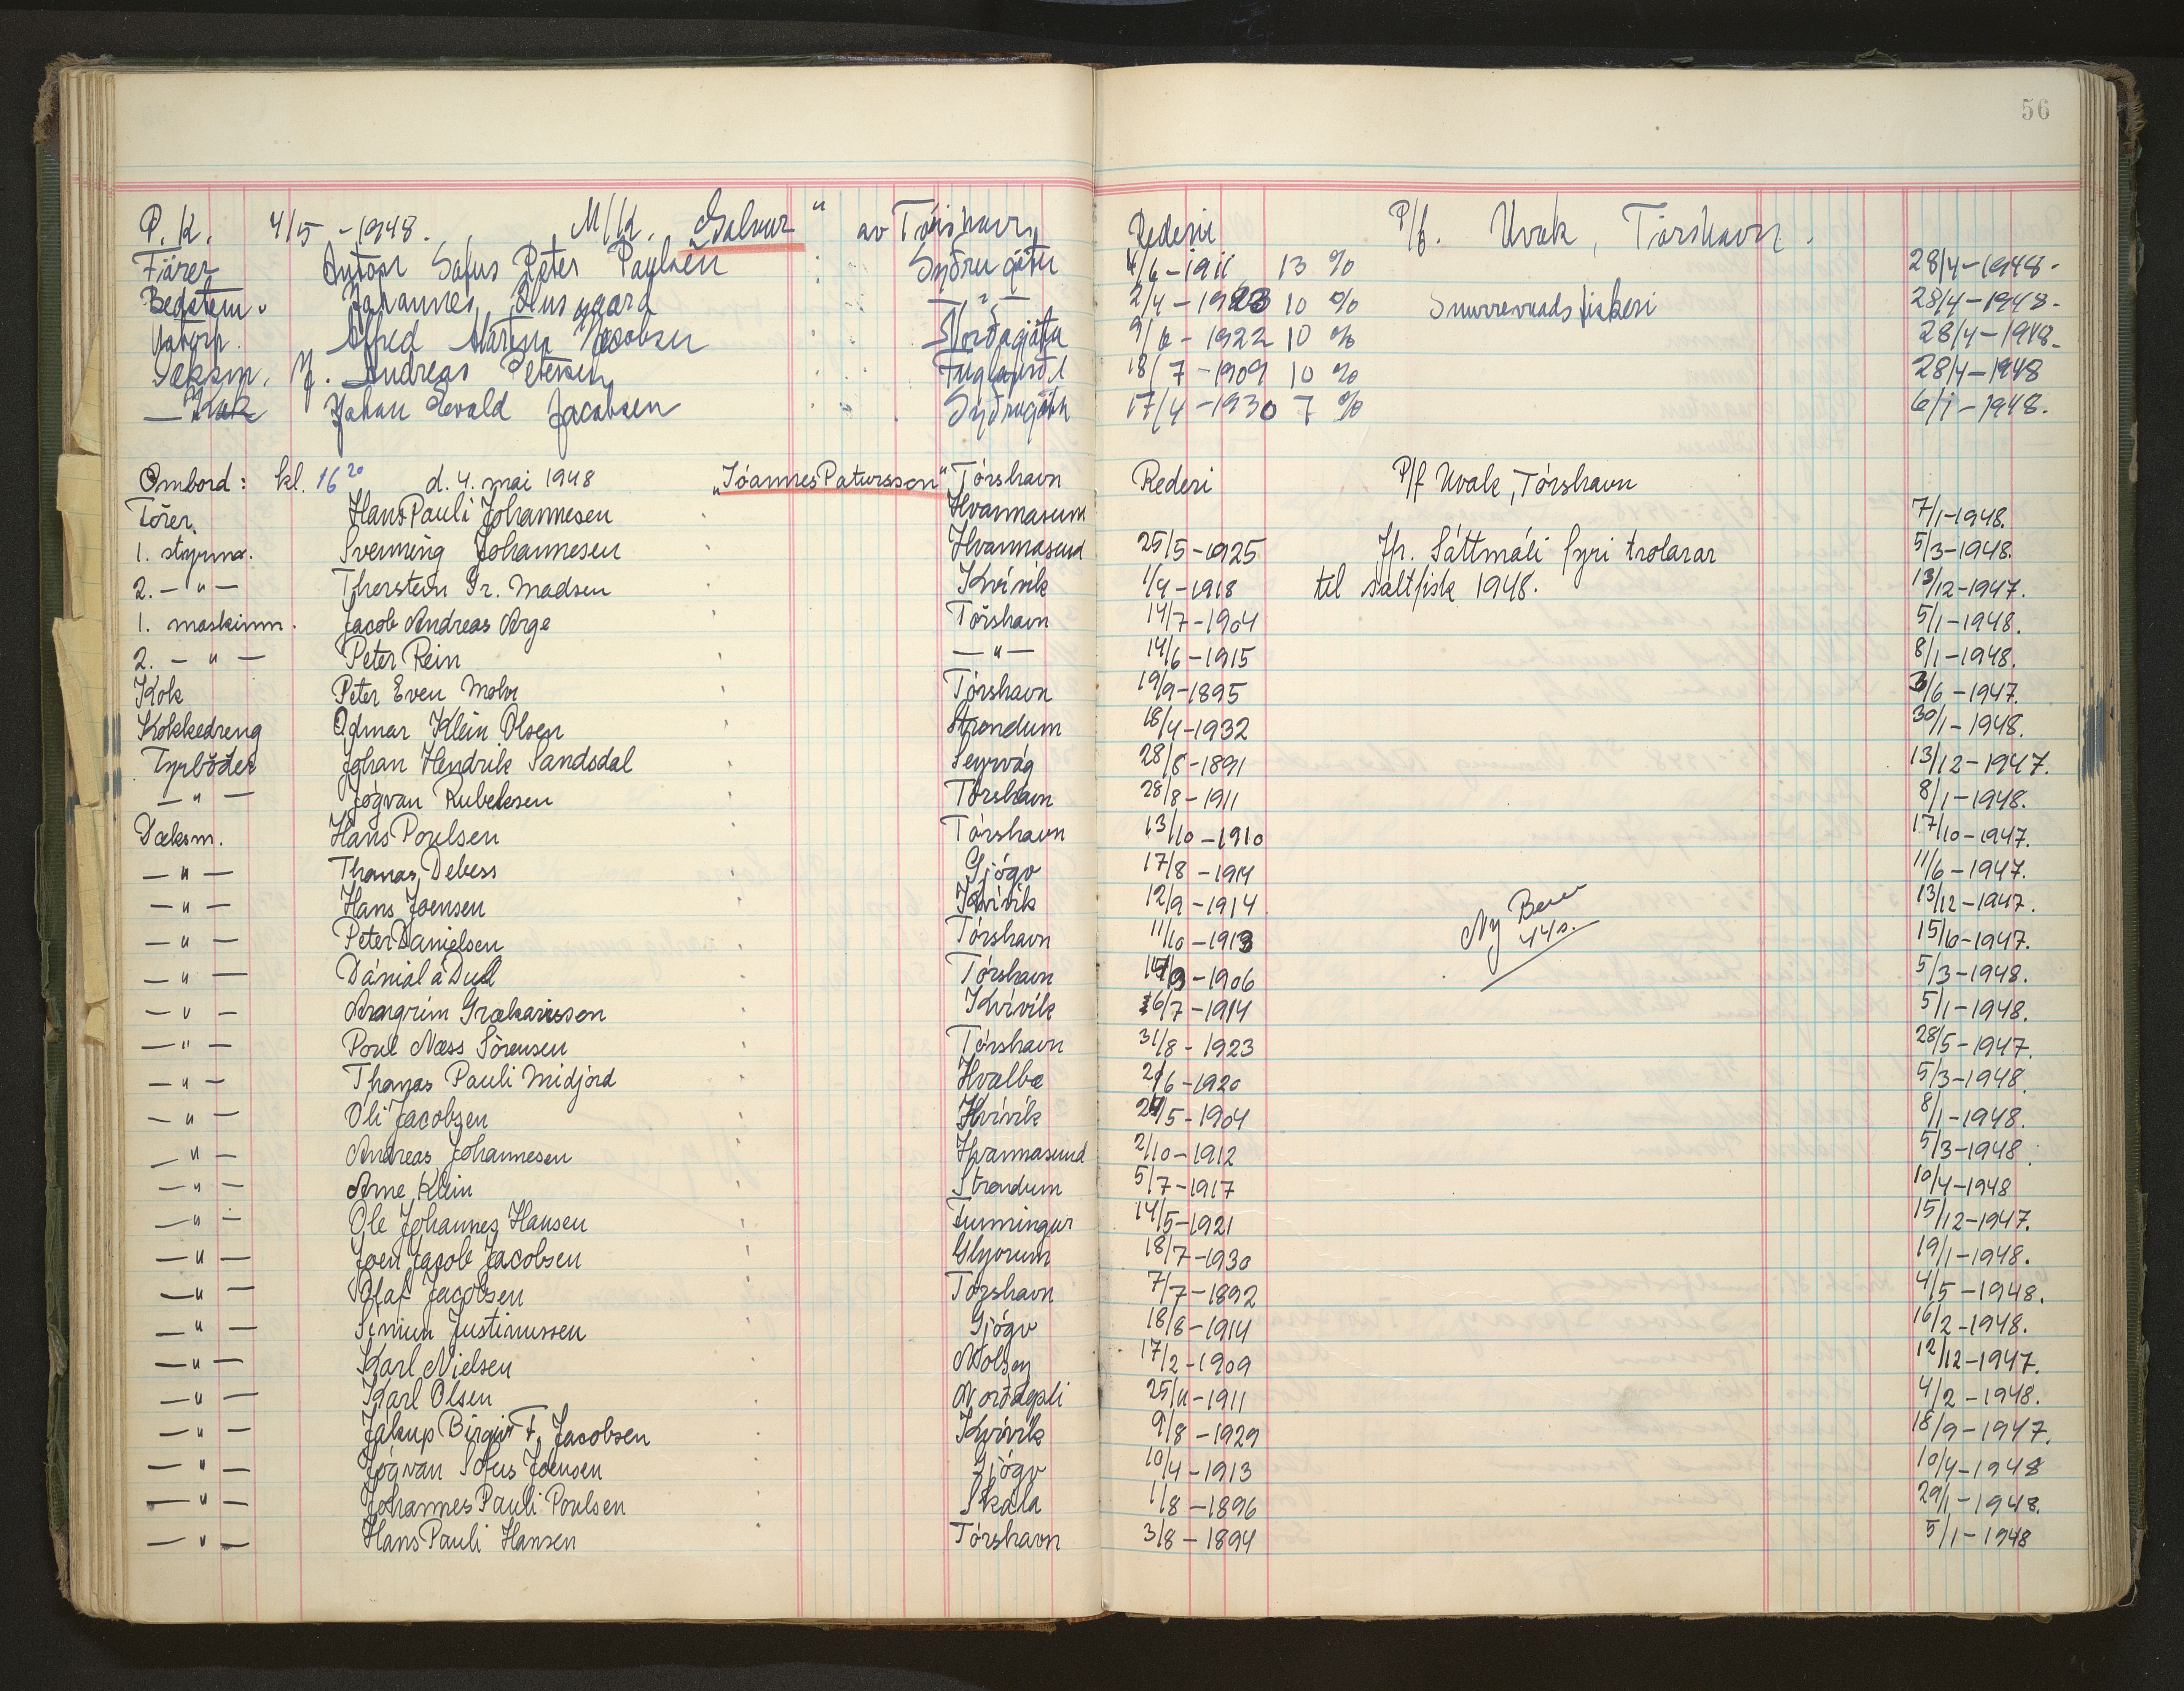 56
P. K. 4/5 -1948. M/K. "Galvur" av Tórshavn Rederi P/f. Uvak, Tórshavn.
Förer Anton Sofus Peter Paulsen Syðrugøtu 4/6-1911 13 % 28/4-1948.
Bedstem. Johannes —"— 2/4-1923 10 % Snurrevaadsfiskeri 28/4-1948.
Alfred Martin Jacobsen Norðagøtu 9/6-1922 10 % 28/4-1948.
Dæksm. J. Andreas Petersen Fuglafirði 18/7-1909 10 % 28/4-1948
— Kok Johan Evald Jacobsen Syðrugøtu 17/4-1930 7 % 6/1-1948.
Ombord: kl. 16 20 d. 4. mai 1948 "Jóannes Patursson" Tórshavn Rederi P/f Uvak, Tórshavn
Förer Hans Pauli Johannesen Hvannasund 7/1-1948.
1. stýrma. Svenning Johannesen Hvannasund 25/5-1925 Jfr. Sáttmáli fyri trolarar 5/3-1948.
2. -"- Thorstein Gr. Madsen Kvívík 1/9-1918 til saltfisk 1948. 13/12-1947.
1. maskinm. Jacob Andreas Arge Tórshavn 14/7-1904 5/1-1948.
2. -"- Peter Rein —"— 14/6-1915 8/1-1948.
Kok Peter Even Mohr Tórshavn 19/9-1895 3/6-1947.
Kokkedreng Odmar Klein Olsen Strendum 18/4-1932 30/1-1948.
Fyrbøder Johan Hendrik Sandsdal Seyrvág 28/8-1891 13/12-1947.
—"— Jógvan Rubeksen Tórshavn 28/8-1911 8/1-1948.
Dæksm. Hans Poulsen Tórshavn 13/10-1910 17/10-1947.
—"— Thomas Debess Gjógv 17/8-1914 11/6-1947.
—"— Hans Joensen Kvívík 12/9-1914 13/12-1947.
—"— Peter Danielsen Tórshavn 11/10-1913 Ny 15/6-1947.
—"— Dánial á Dul Tórshavn -1906 5/3-1948.
—"— Arngrim Grækarisson Kvívík 6/7-1914 5/1-1948.
—"— Poul Næss Sörensen Tórshavn 31/8-1923 28/5-1947.
—"— Thomas Pauli Midjord Hvalba 2/6-1920 5/3-1948.
—"— Oli Jacobsen Kvívík 29/5-1904 8/1-1948.
—"— Andreas Johannesen Hvannasund 2/10-1912 5/3-1948.
—"— Arne Klein Strendum 5/7-1917 10/4-1948
—"— Ole Johannes Hansen Funningur 14/5-1921 15/12-1947.
—"— Joen Jacob Jacobsen Glyvrum 18/7-1930 19/1-1948.
—"— Olaf Jacobsen Tórshavn 7/7-1892 4/5-1948.
—"— Simun Justinussen Gjógv 18/8-1914 16/2-1948.
—"— Karl Nielsen Nolsoy 17/2-1909 12/12-1947.
—"— Karl Olsen Norðdepli 25/11-1911 4/2-1948.
—"— Jákup Birgir F. Jacobsen Kvívík 9/8-1929 18/9-1947.
—"— Jógvan Sofus Joensen Gjógv 10/4-1913 10/4-1948
—"— Johannes Pauli Poulsen Skála 1/8-1896 29/1-1948.
—"— Hans Pauli Hansen Tórshavn 3/8-1894 5/1-1948